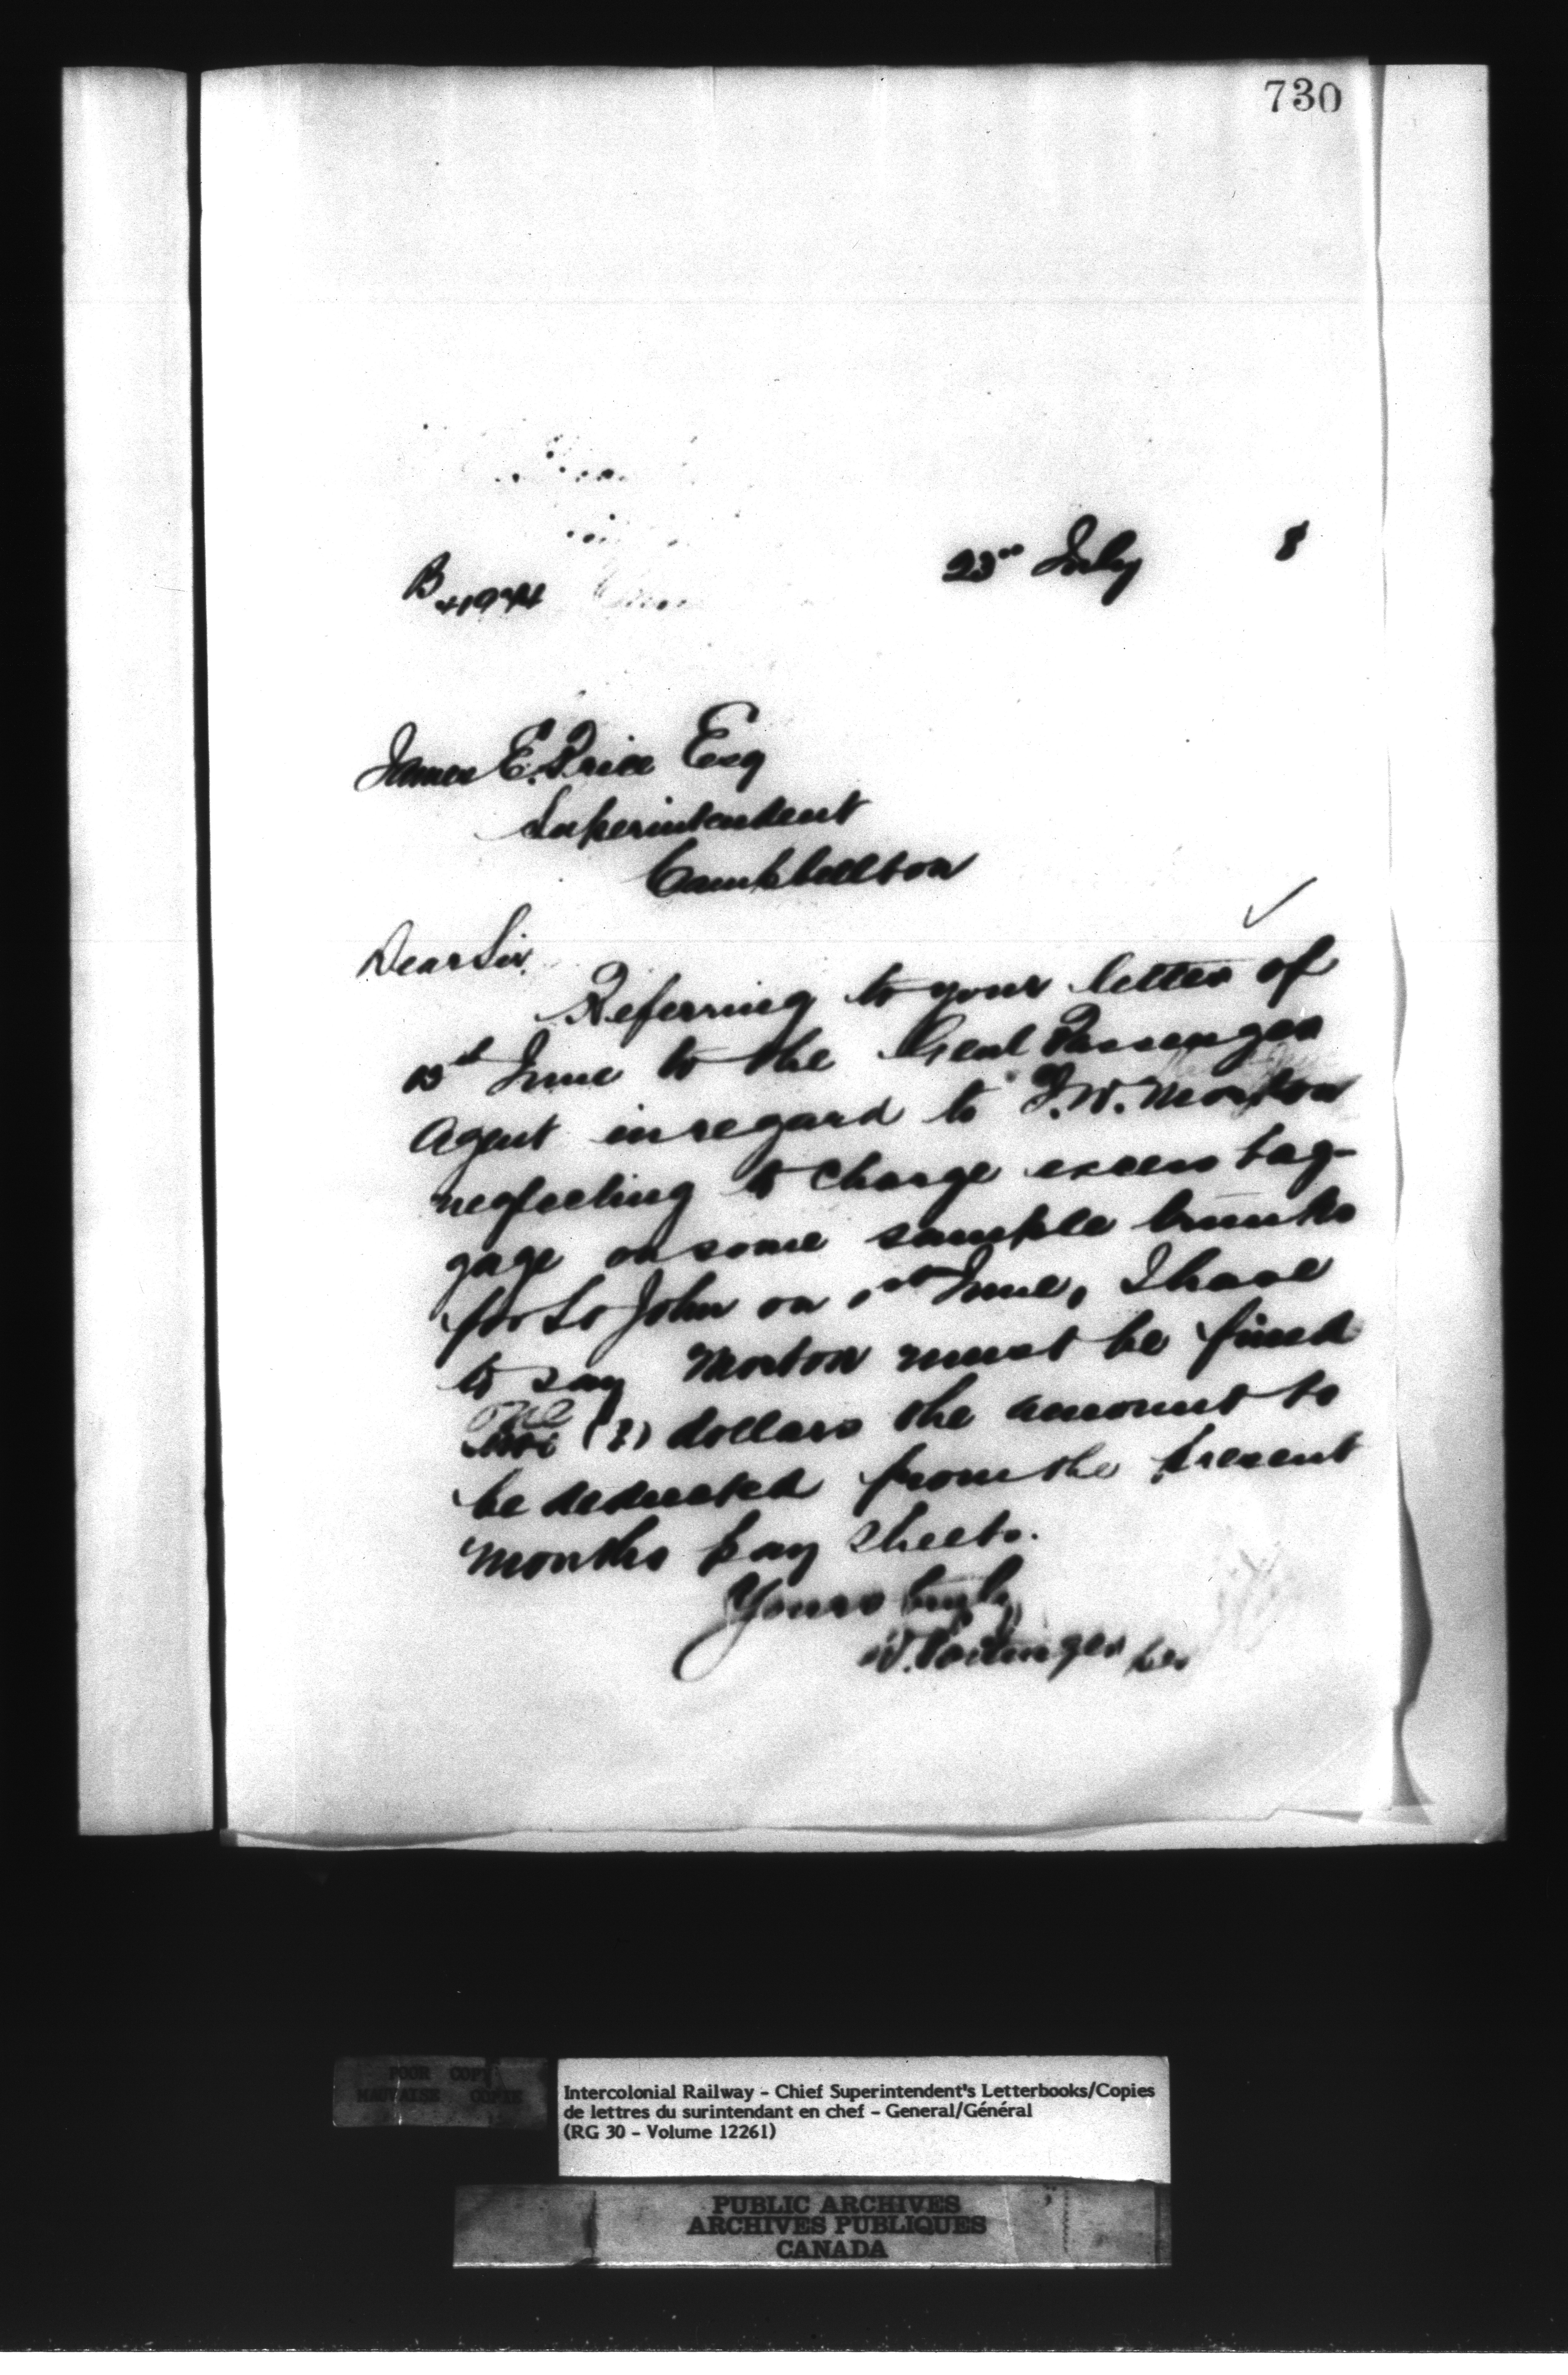 730
23rd July 8
B
James E. Price Esq
Superintendent
Campbellton
Dear Sir,
Referring to your letter of
15th June to the Genl Passenger
Agent in regard to F. W. Morton
neglecting to charge excess bag-
gage on some sample trunks
for St John on 1st June, I have
to say Morton must be fined
One
dollars the amount to
be deducted from the present
months pay sheets.
Yours truly
W. Pottinger
POOR COPY
MAUVAISE COPIE
Intercolonial Railway - Chief Superintendent's Letterbooks/Copies
de lettres du surintendant en chef - General/Général
(RG 30 - Volume 12261)
PUBLIC ARCHIVES
ARCHIVES PUBLIQUES
CANADA